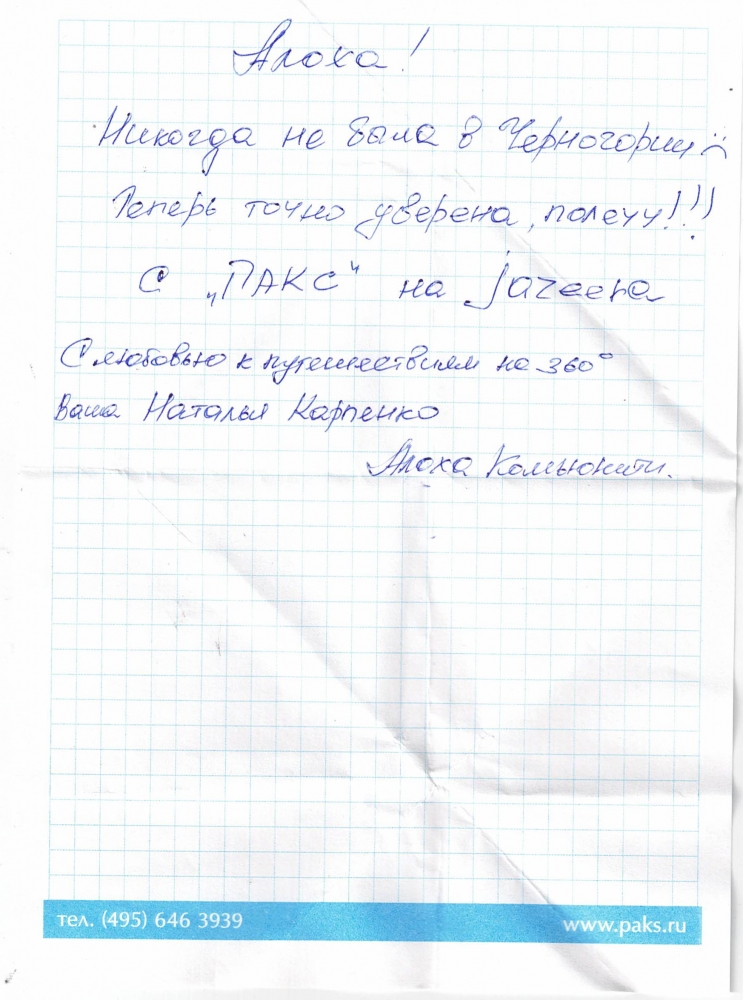 Алоха!
Никогда не была в Черногории :(
Теперь точно уверена, полечу!!!
С „ПАКС“ на Jazeera
С любовью к путешествиям на 360°
Ваша Наталья Карпенко
Алоха Комьюнити.
тел. (495) 646 3939
www.paks.ru